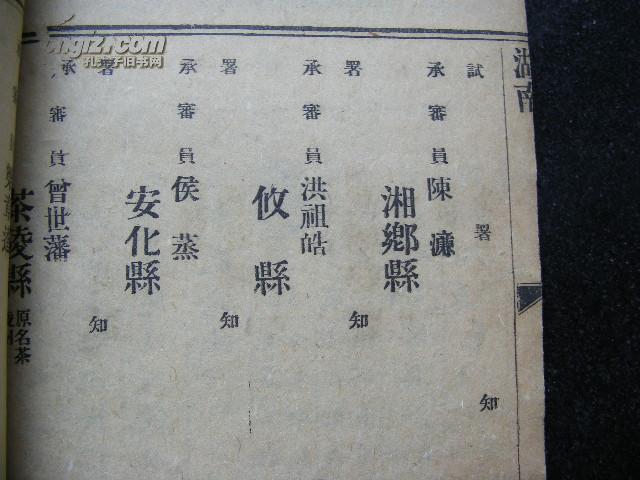 湖南
試署知
承審員陳濂
湘鄉縣
署知
承審員洪祖皓
攸縣
署知
承審員侯蒸
安化縣
署知
承審員曾世藩
茶陵縣原名茶
孔夫子旧书网